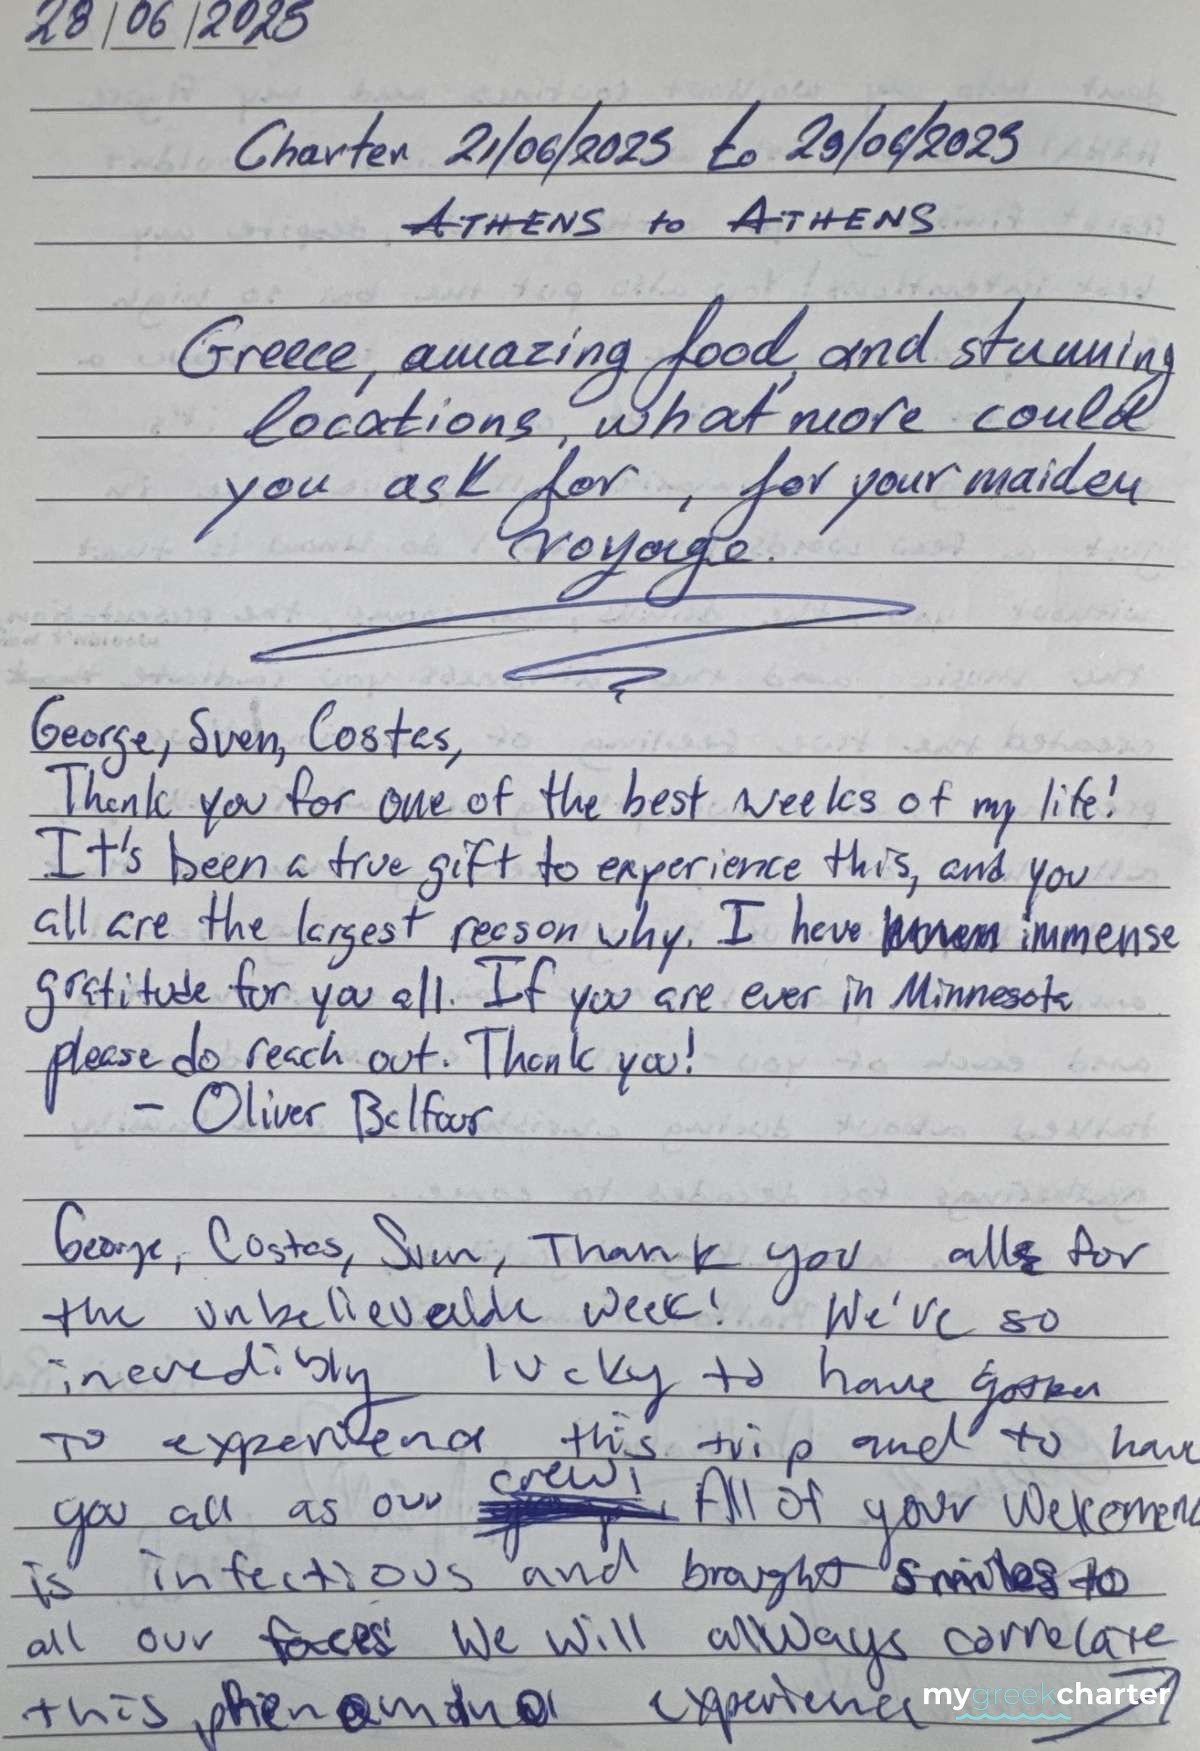 28/06/2025
Charter 21/06/2025 to 29/06/2025
ATHENS to ATHENS
Greece, amazing food, and stunning
locations, what more could
you ask for, for your maiden
voyage.
George, Sven, Costas,
Thank you for one of the best weeks of my life!
It's been a true gift to experience this, and you
all are the largest reason why. I have immense
gratitude for you all. If you are ever in Minnesota
please do reach out. Thank you!
- Oliver Balfour
George, Costas, Sven, Thank you all for
the unbelievable week! We've so
incredibly lucky to have gotten
to experience this trip and to have
you all as our crew! All of your
is infectious and brought smiles to
all our faces! We will allways correlate
this experience
mygreekcharter